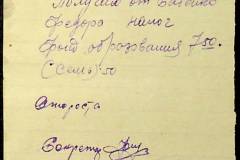 Получил от Баленко
Федора налог
фонд образования 7 50.
(семь) 50
Староста
Секретар